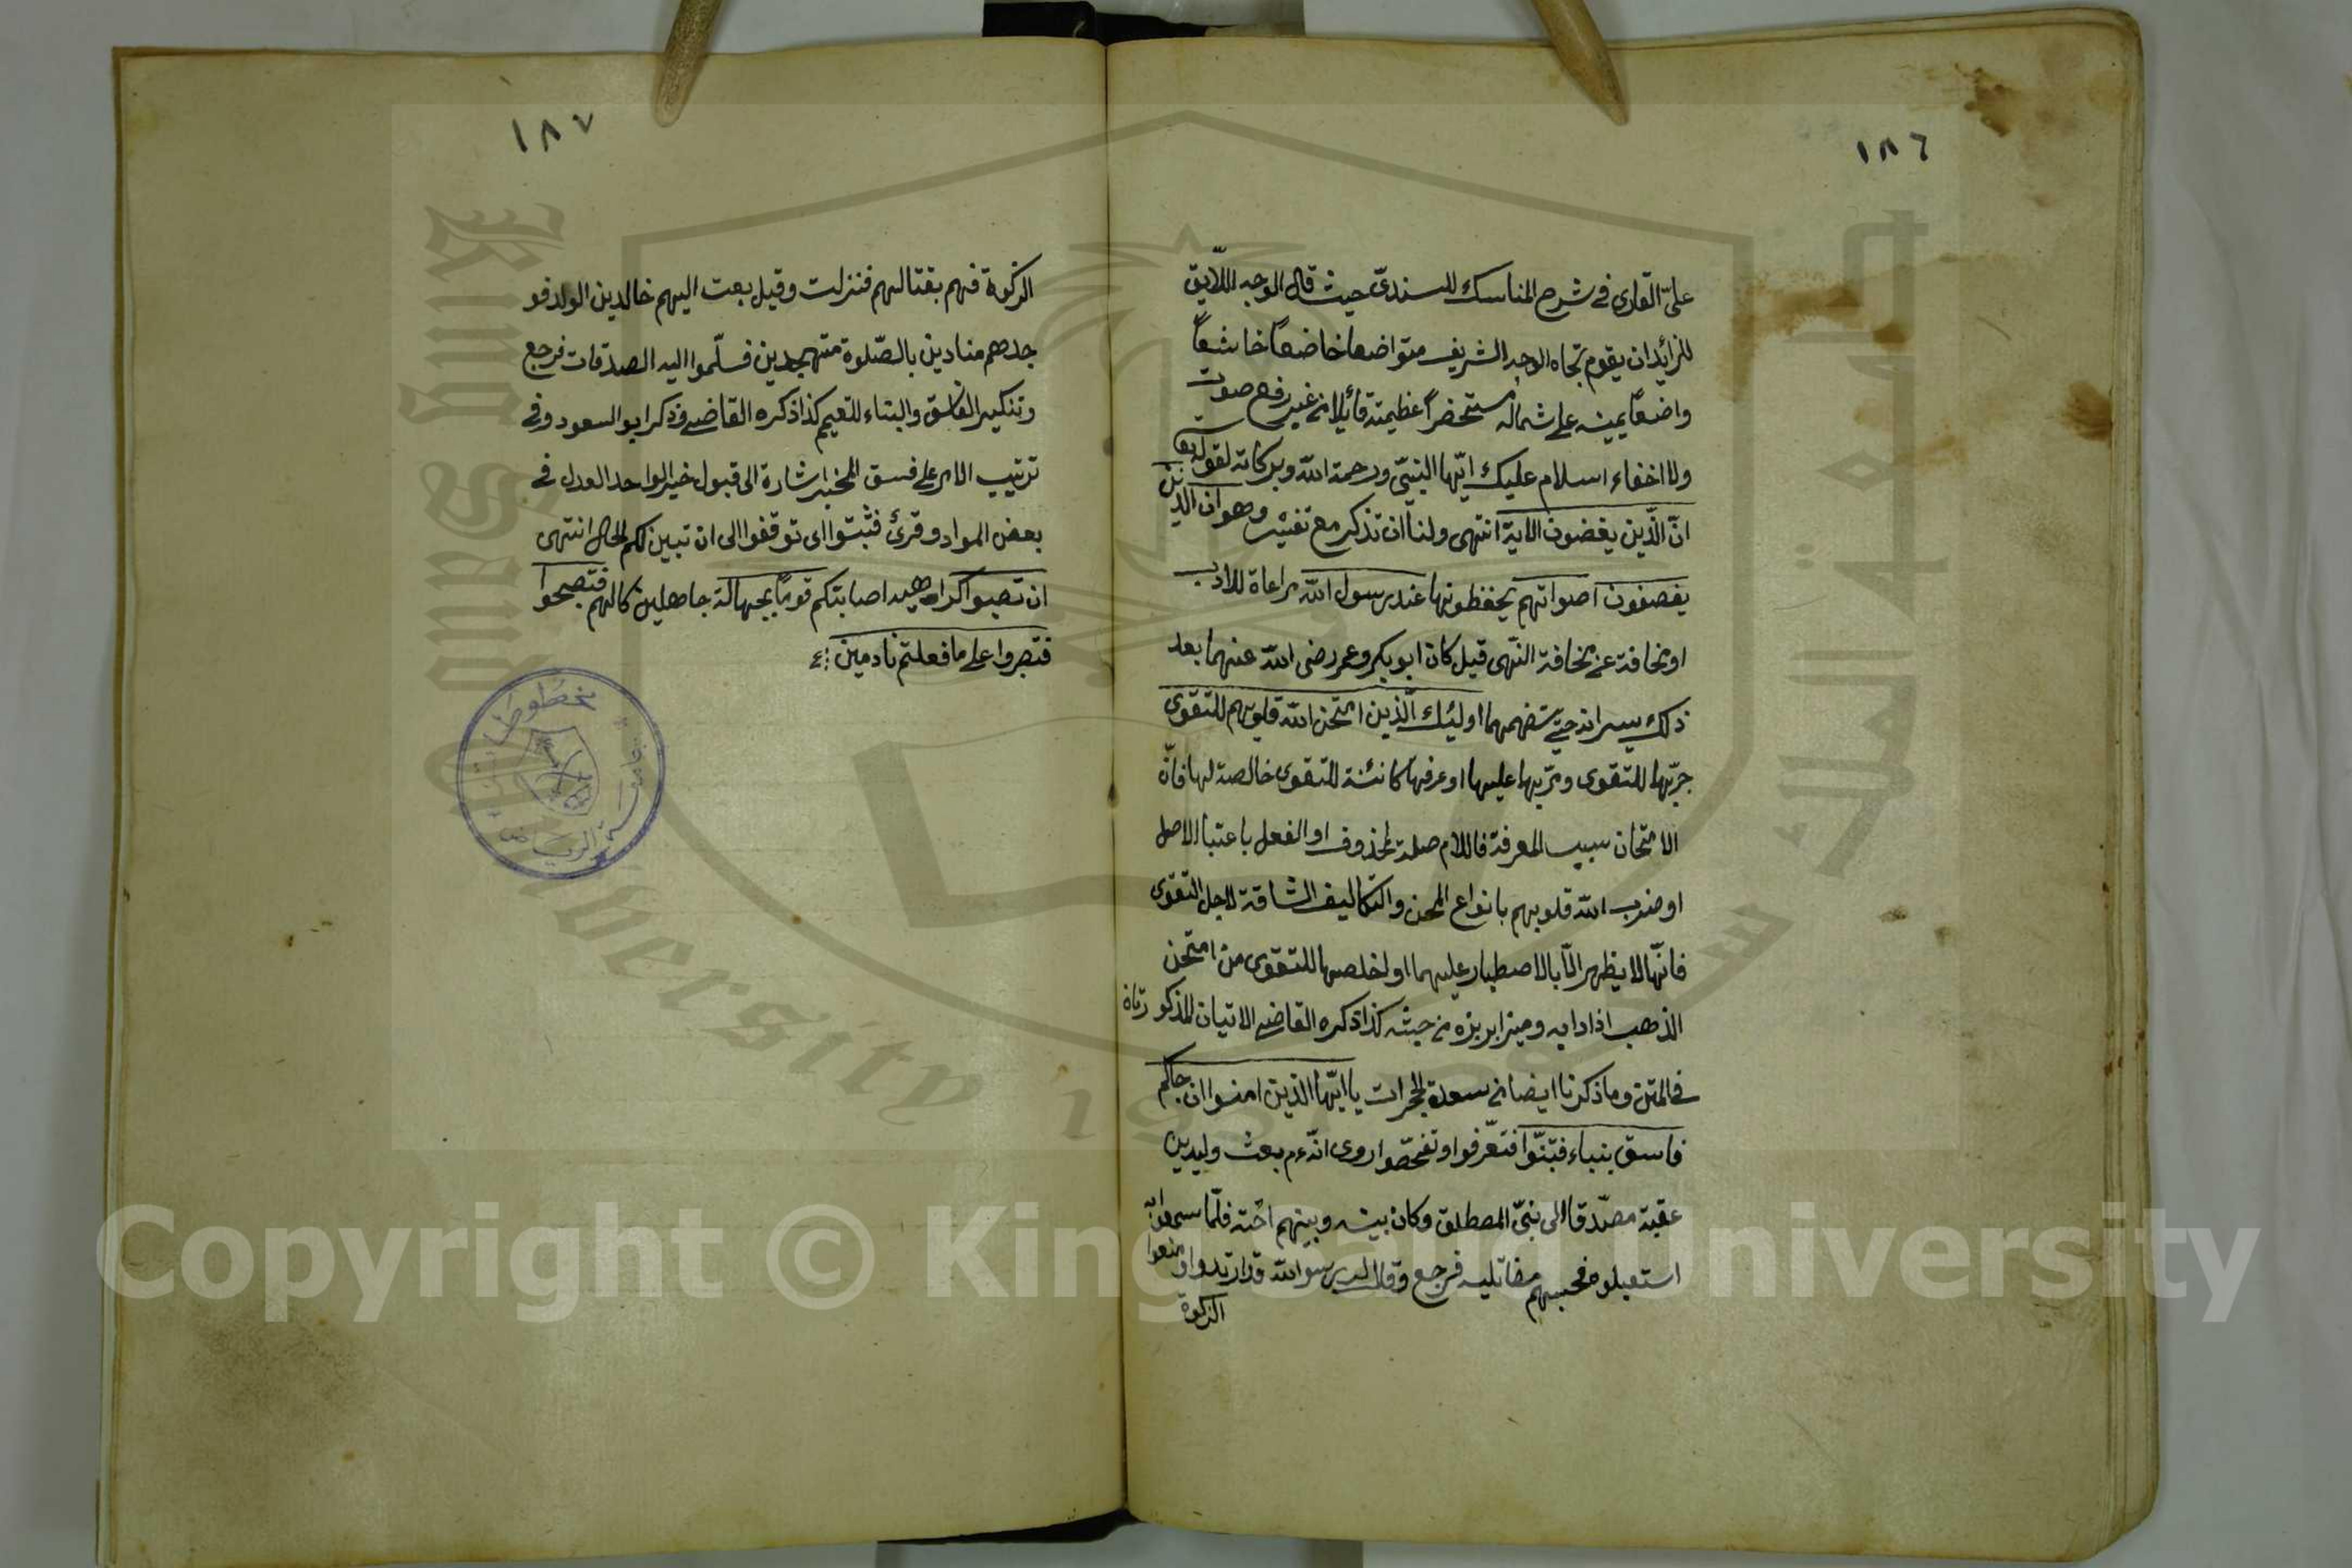 ١٨٦
علىّ القارى فى شرح المناسك للسندىّ حيث قال الوجه اللّايق
للزائدان يقوم تجاه الوجه الشريف متواضعا خاضعاً خاشعاً
واضعاً يمينه على شماله مستحضراً عظيمته قائلا من غير رفع صوت
ولا اخفاء اسلام عليك ايّها النبىّ ورحمة الله وبركاته لقوله تعا
انّ الّذين يغضون الاية انتهى ولنا ان نذكر مع تفسير وهو ان الذين
يغضون اصواتهم يخفظونها عند رسول الله مراعاة للادب
او مخافة عن مخافة النّهى قيل كان ابو بكر وعمر رضى الله عنهما بعد
ذلك يسرانه حتّى يستفهمهما اولئك الّذين امتحن الله قلوبهم للتقوى
جرّبها للتقوى ومرّبها عليها او عرفها كائنة للتقوى خالصة لها فانّ
الامتحان سبب المعرفة فاللام صلة لمحذوف او الفعل باعتبا الاصل
او ضرب الله قلوبهم بانواع المحن والتكاليف الشاقة لاجل التقوى
فانّها لا يظهر الّا بالاصطبار عليهما او اخلصها للتقوى من امتحن
الذهب اذا اذابه وميز ابريزه من خبثه كذا ذكره القاضى الاتيان المذكو رتاه
فى المتن وما ذكرنا ايضا فى سورة الحجرات يا ايّها الذين امنوا ان جاكم
فاسق بنباء فتبنّوا فتعّرفوا وتفحّصوا روى انّه عم بعث وليد بن
عقبة مصدّقا الى بنىّ المصطلق وكان بينه وبينهم احنة فلمّا سمعوا به
استعبلوه فحسبهم مقاتليه فرجع وقال لرسو الله قد ارتدوا ومنعوا
الزكوة
١٨٧
الزكوة فهم بقتالهم فنزلت وقيل بعث اليهم خالد بن الولد فو
جدهم منادين بالصّلوة متهجدين فسلّموا اليه الصدقات فرجع
وتنكير الفاسق والبناء للتعيم كذا ذكره القاضى وذكر ابو السعود وفى
ترتيب الامر على فسق المخبر اشارة الى قبول خبر الواحد العدل فى
بعض المواد وقرئ فثبتوا اى توقفوا الى ان تبين لكم الحال انتهى
ان تصيبوا كراهيه اصابتكم قومًا بجهالة جاهلين كالهم فتصبحوا
فتصروا على ما فعلتم نادمين
مخطوطات
جامعة الرياض
Copyright © King Saud University
King Saud University
جامعة الملك سعود